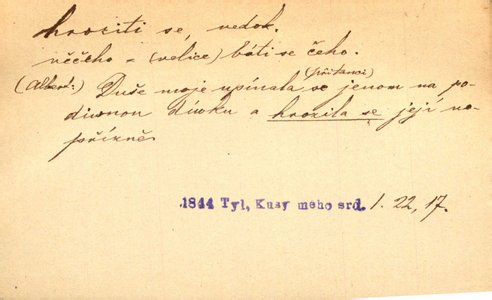 hroziti se, nedok.
něčeho = (velice) báti se čeho.
(Albert:) Duše moje upínala se (přítomci) jenom na po-
diwnou díwku a hrozila se její na-
přikně
1844 Tyl, Kusy meho srd. 1. 22, 17.